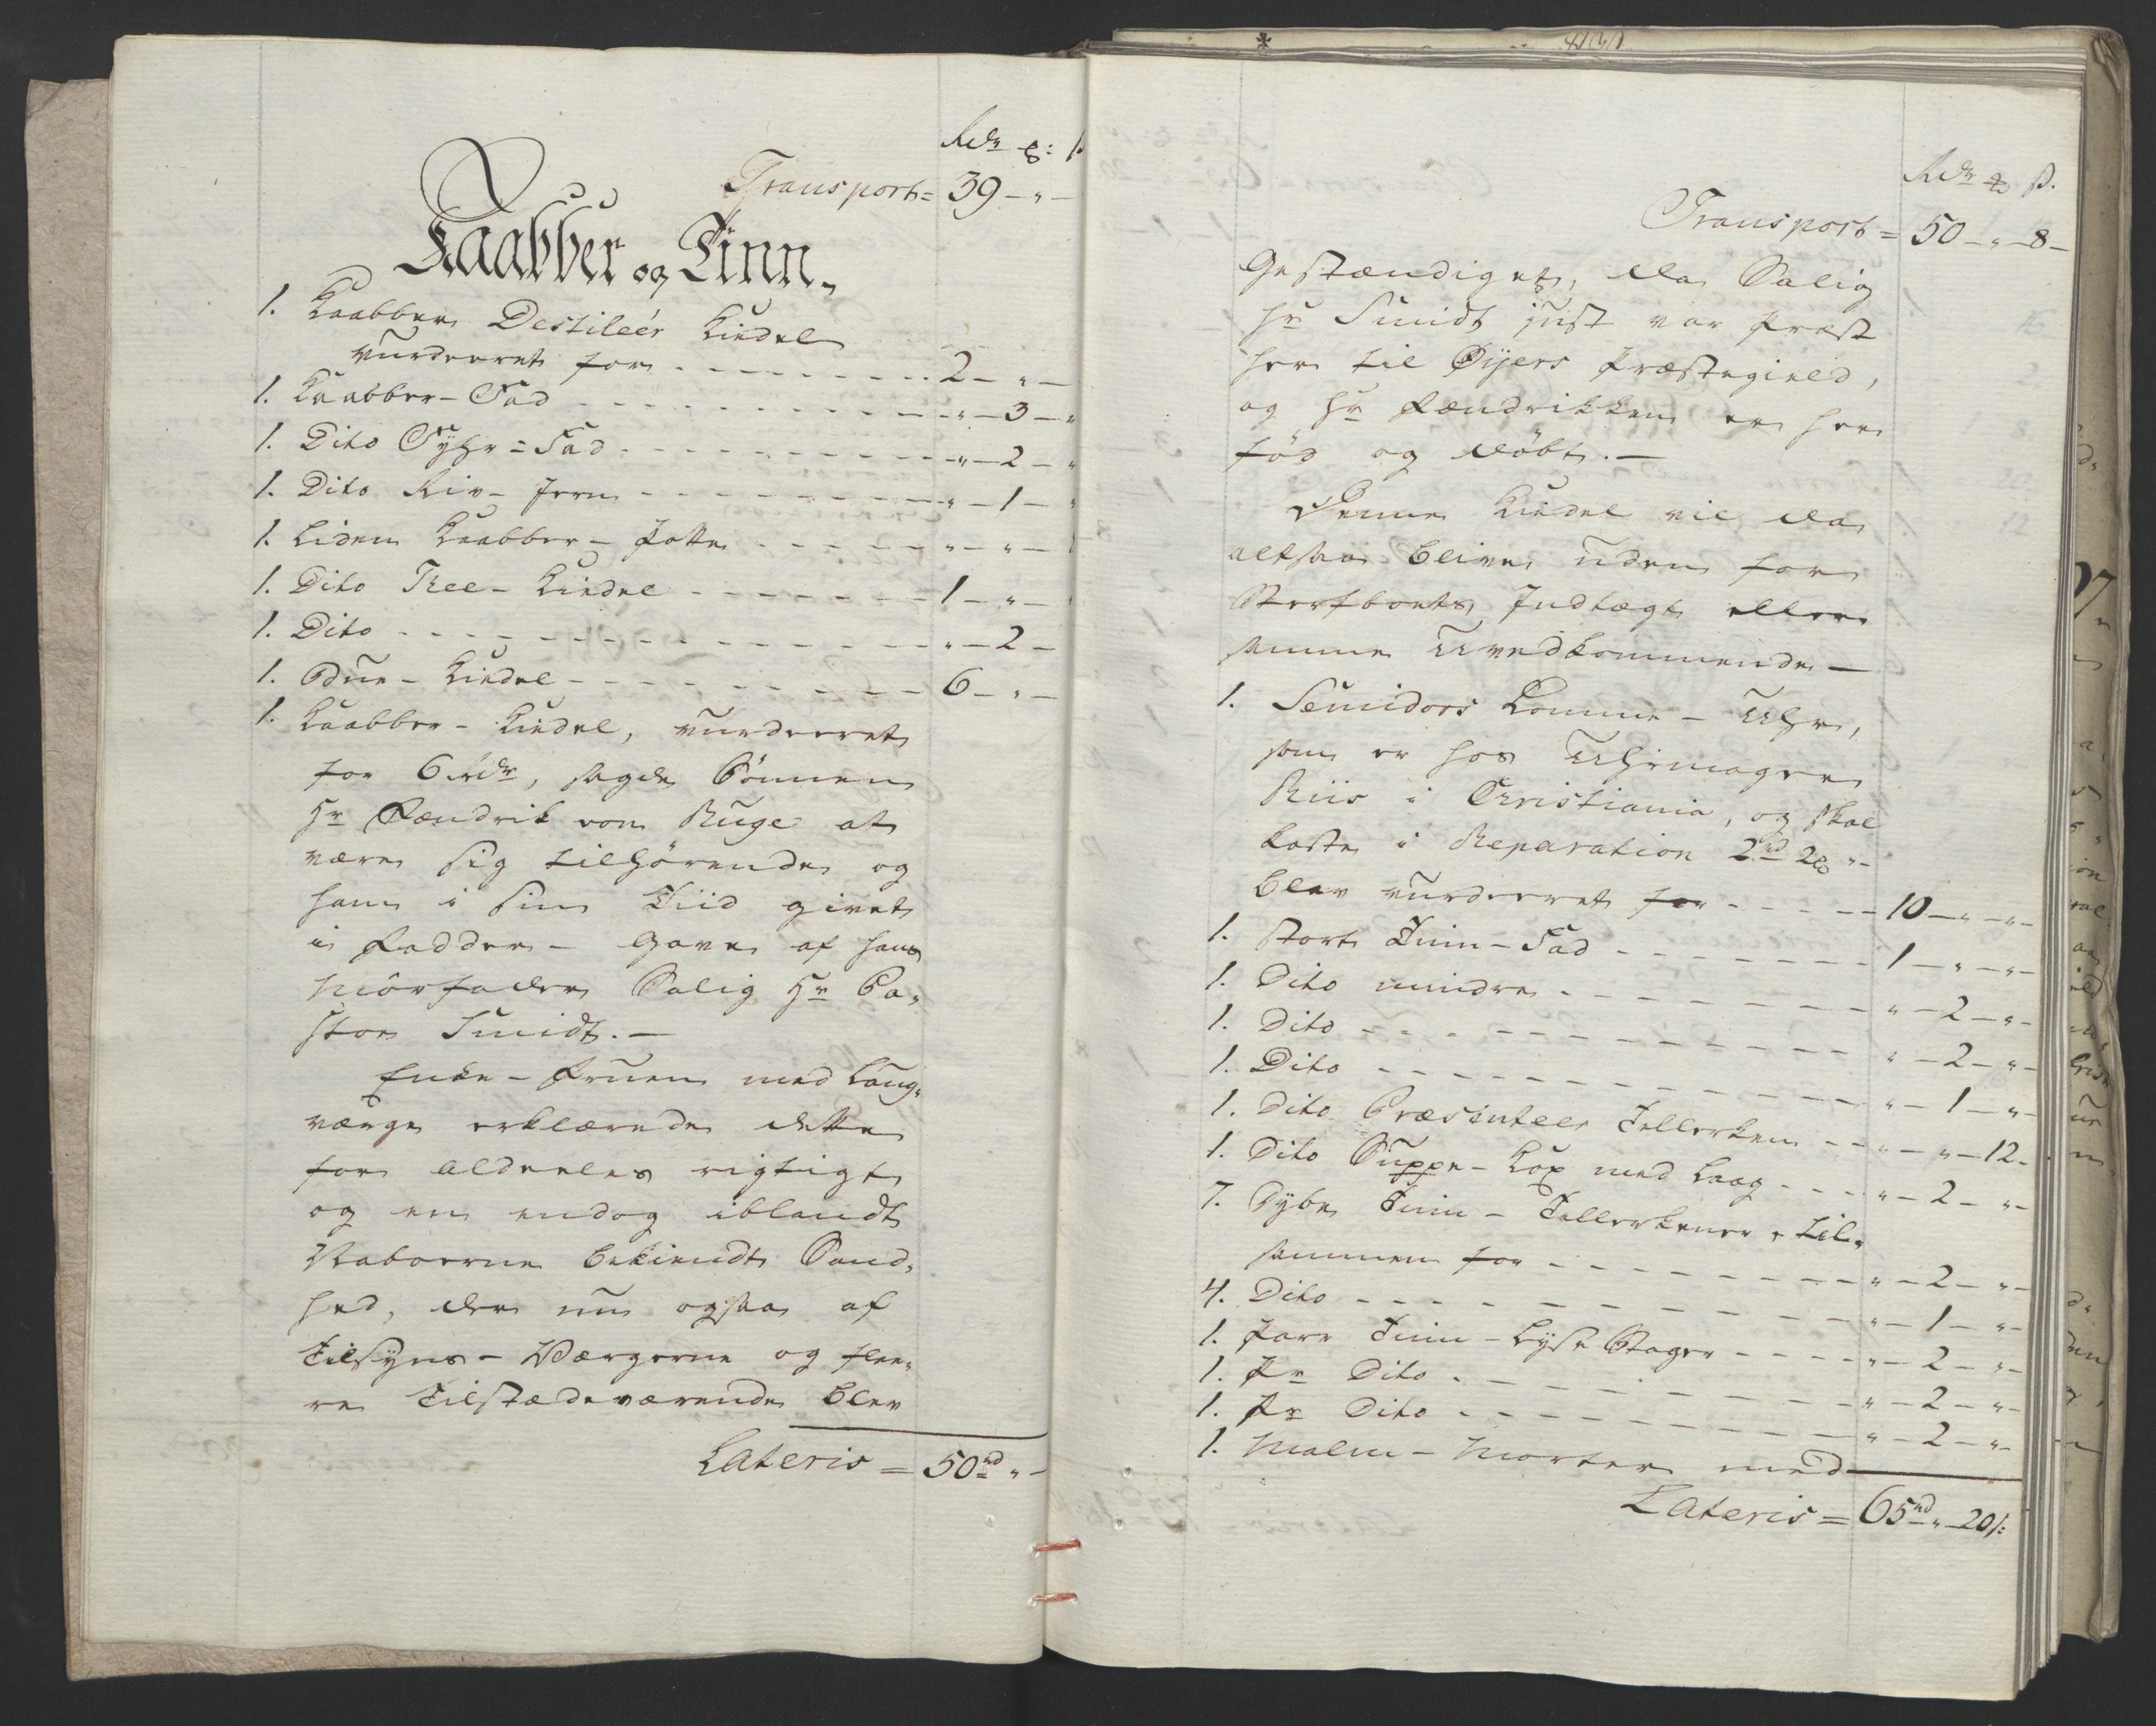 Rdr ℔: s.
Transport = 39 – " –
Kaabber og Tinn.
1. Kaabber Destileér Kiedel
vurderet for - - - - - - - - 2 – " –
1. Kaabber-Fad - - - - - - - - " – 3 – "
1. Dito Fyhr = Fad - - - - - - - " – 2 – "
1. Dito Riv-Jern - - - - - - - " – 1 – "
1. Liden Kaabber-Potte - - - - - " – " –
1. Dito Thee-Kiedel - - - - - - 1 – " –
1. Dito - - - - - - - - - - - - " – 2 –
1. Kiedel - - - - - - - - - 6 – " –
1. Kaabber-Kiedel, vurderet
for 6 Rdr, sagde Sönnen
Hr Fændrik von Ruge at
være sig tilhörende og
ham i sin Tiid givet
i Fadder-Gave af hans
Mórfader Salig Hr Pa,
stor Smidt. –
Enke-Fruen med Laug,
værge erklærede dette
for aldeeles rigtigt
og en endog iblandt
Naboerne bekiendt Sand,
hed, der nu ogsaa af
Tilsyns-Værgerne og flee,
re Tilstædeværende blev
Lateris = 50rd " –
Rdr ℔ s.
Transport = 50 – " – 8 –
Gestændiget, da Salig
Hr Smidt just var Præst
her til Øijers Præstegield,
og Hr Fændrikken er her
föd og döbt. –
Denne Kiedel vil da
altsaa blive uden for
Sterfboets Indtægt eller
samme Uvedkommende –
1. Semidors Lomme-Uhr,
som er hos Uhrmager
Riis i Christiania, og skal
koste i Reparation 2rd 2℔ "
blev vurderet for - - - - 10 – " – "
1. stort Tinn-Fad - - - - - - 1 – " – "
1. Dito mindre - - - - - - - " – 2 – "
1. Dito - - - - - - - - - - " – 2 – "
1. Dito - - - - - - - - - - " – 1 – "
1. Dito Præsinteer Tellerken - - " – " – 12.
1. Dito Suppe-Kop med Laag - - - " – 2 – "
7. Dybe Tinn-Tallerkener, til,
sammen for - - - - - - - - " – 2 – "
4. Dito - - - - - - - - - - " – 1 – "
1. Parr Tinn-Lyse Stager - - - " – 2 – "
1. Pr Dito - - - - - - - - " – 2 – "
1. Pr Dito - - - - - - - - " – 2 – "
1. Malm-Morter med
Lateris = 65rd " – 20 s: